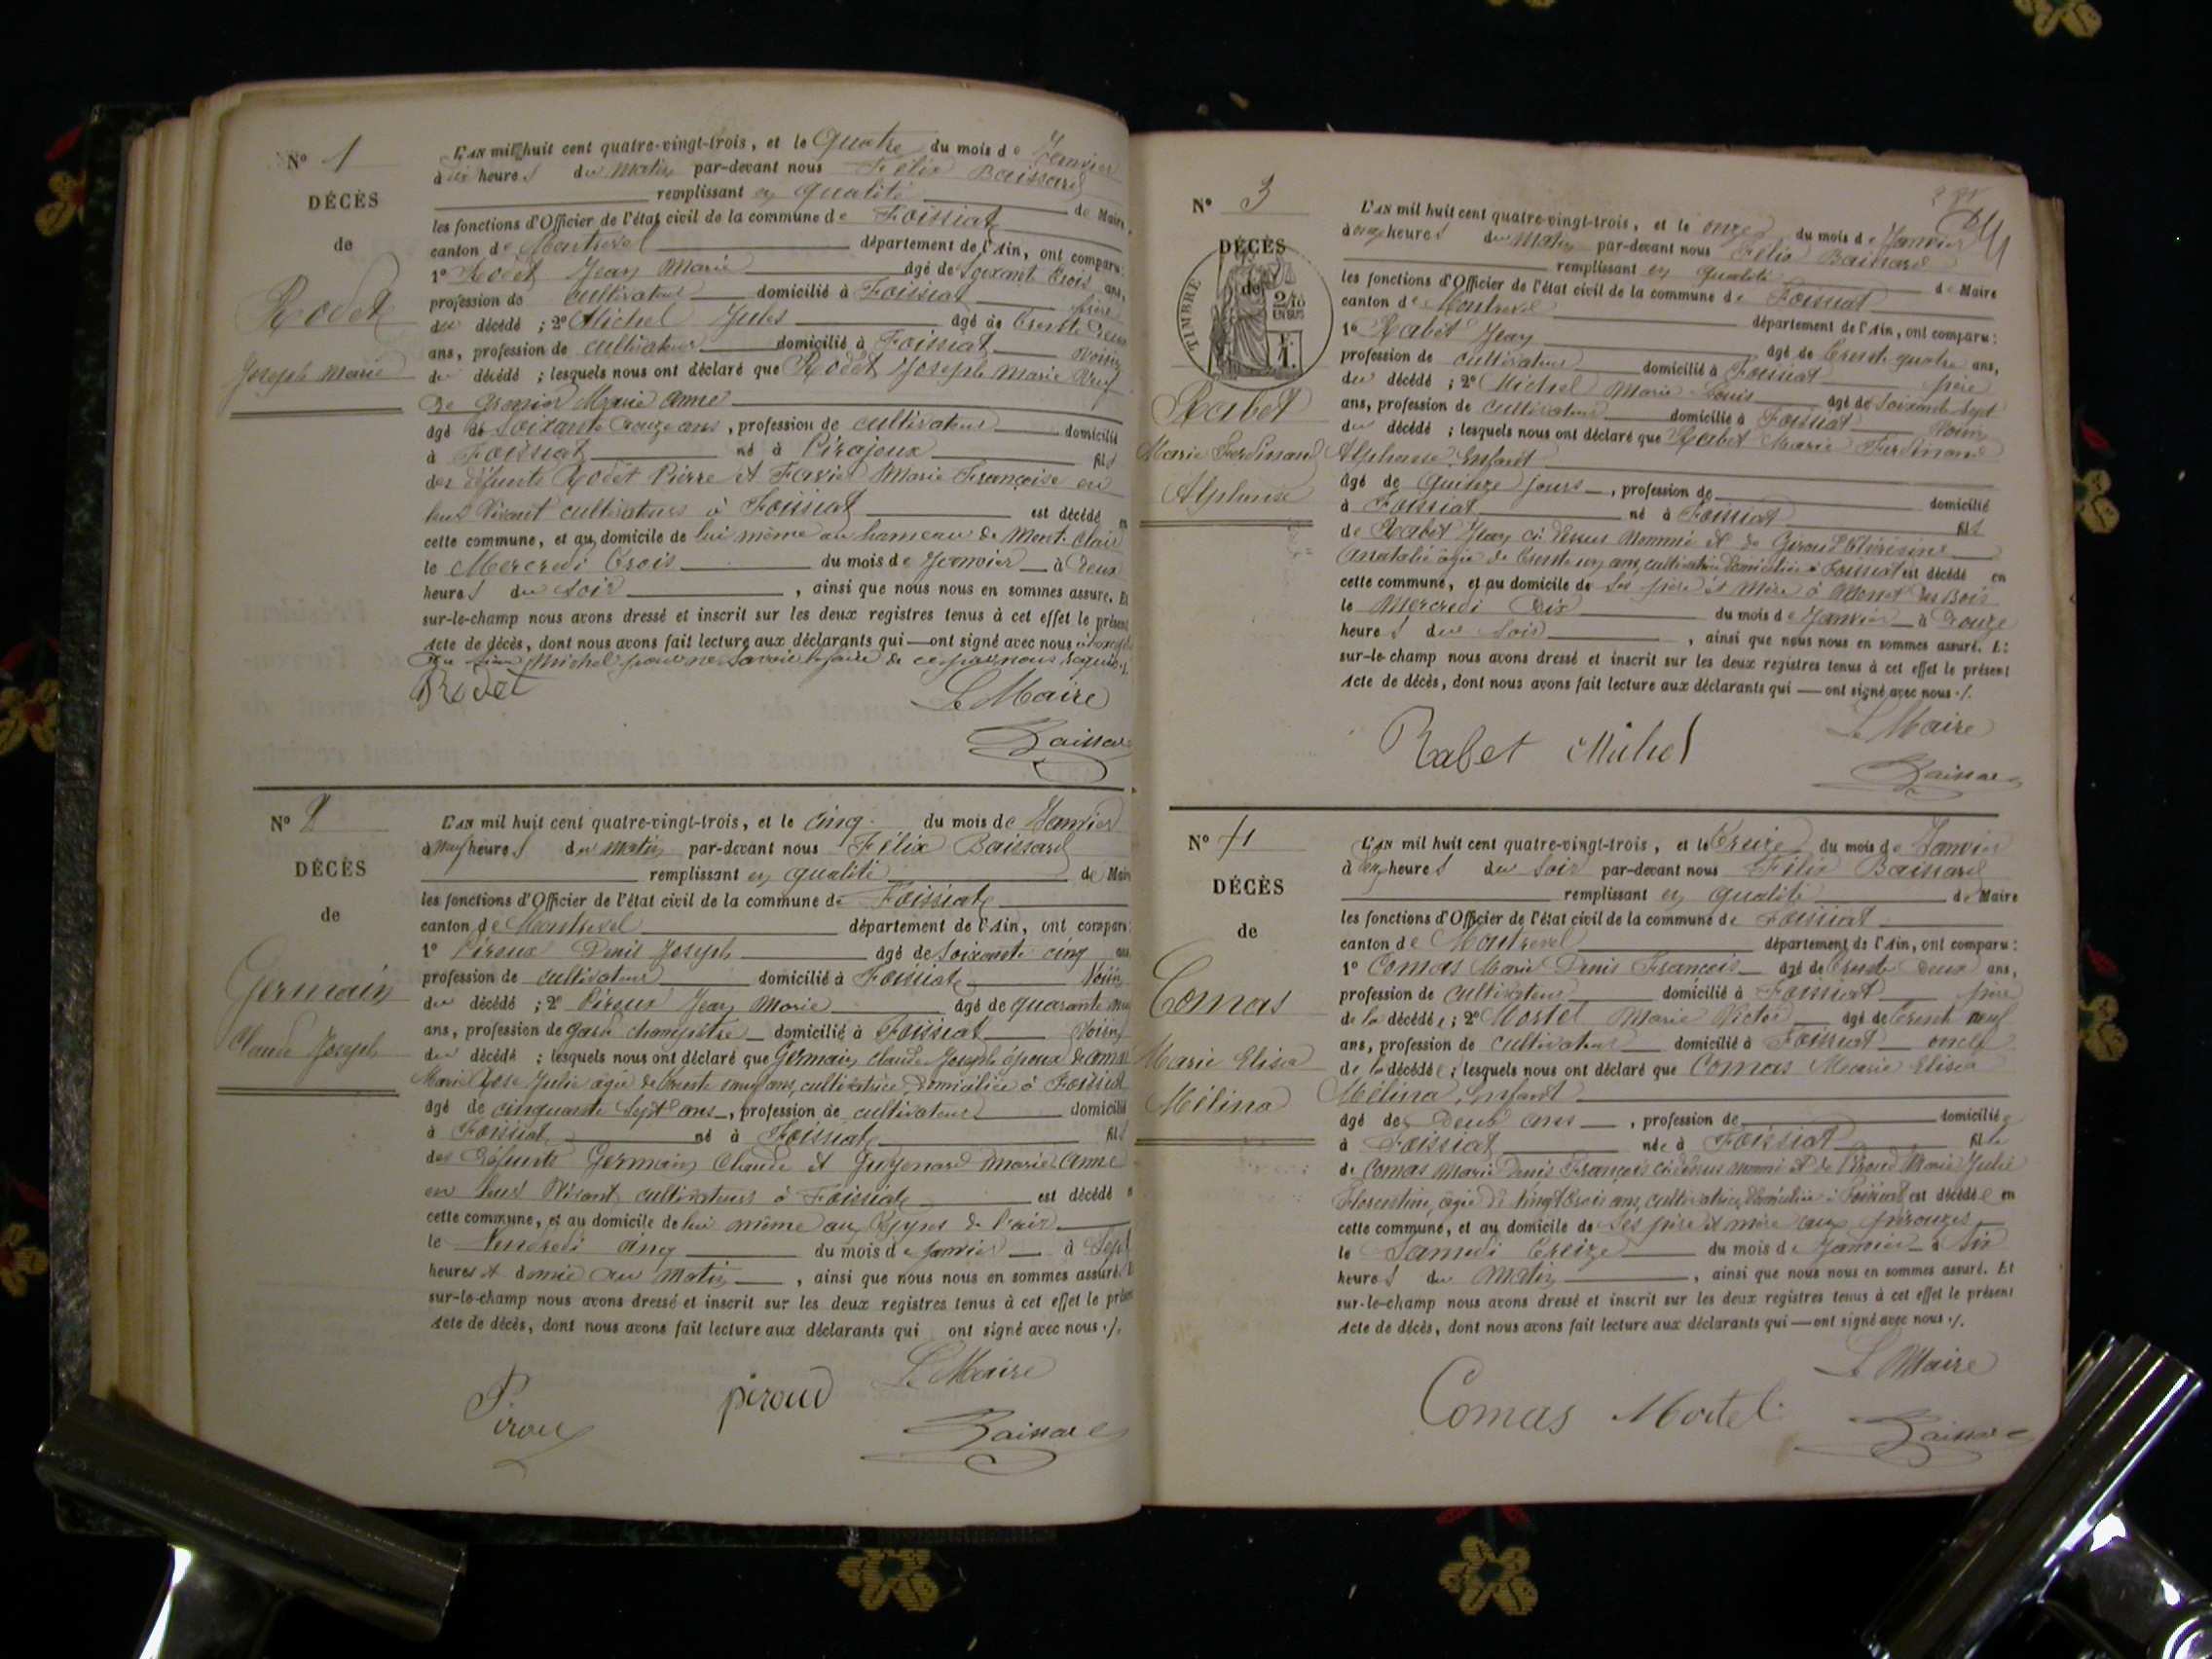 N° 1
DÉCÈS
de
Rodet
Joseph Marie
L'AN mil huit cent quatre-vingt-trois, et le Quatre du mois de Janvier
à dix heures du Matin par-devant nous Félix Baissard
remplissant en qualité de Maire
les fonctions d'Officier de l'état civil de la commune de Foissiat
canton de Montrevel département de l'Ain, ont comparu:
1° Rodet Jean Marie âgé de Soixante Trois ans,
profession de cultivateur domicilié à Foissiat frère
du décédé; 2° Michel Jules âgé de trente deux
ans, profession de cultivateur domicilié à Foissiat Voisin
du décédé; lesquels nous ont déclaré que Rodet Joseph Marie Veuf
de Marie Anne
âgé de Soixante Douze ans, profession de cultivateur domicilié
à Foissiat né à Pirajoux fils
des défunts Rodet Pierre et Favier Marie Françoise en
leur Vivant cultivateurs à Foissiat est décédé en
cette commune, et au domicile de lui même au hameau de Mont Clair
le Mercredi trois du mois de Janvier à Deux
heures du Soir, ainsi que nous nous en sommes assuré. Et
sur-le-champ nous avons dressé et inscrit sur les deux registres tenus à cet effet le présent
Acte de décès, dont nous avons fait lecture aux déclarants qui — ont signé avec nous
Michel pour ne savoir le faire de ce par nous requis ./.
Rodet Le Maire
Baissard
N° 2
DÉCÈS
de
Germain
Claude Joseph
L'AN mil huit cent quatre-vingt-trois, et le cinq du mois de Janvier
à neuf heures du Matin par-devant nous Félix Baissard
remplissant en qualité de Maire
les fonctions d'Officier de l'état civil de la commune de Foissiat
canton de Montrevel département de l'Ain, ont comparu:
1° Piroux Denis Joseph âgé de Soixante cinq ans
profession de cultivateur domicilié à Foissiat Voisin
du décédé; 2° Piroud Jean Marie âgé de quarante neuf
ans, profession de garde champêtre domicilié à Foissiat Voisin
du décédé; lesquels nous ont déclaré que Germain Claude Joseph époux de Comas
Marie Rose Julie âgée de trente cinq ans, cultivatrice domiciliée à Foissiat
âgé de cinquante Sept ans, profession de cultivateur domicilié
à Foissiat né à Foissiat fils
des défunts Germain Claude et Guyenard Marie Anne
en leur Vivant cultivateurs à Foissiat est décédé en
cette commune, et au domicile de lui même
le Vendredi cinq du mois de Janvier à Sept
heures et demie du Matin, ainsi que nous nous en sommes assuré. Et
sur-le-champ nous avons dressé et inscrit sur les deux registres tenus à cet effet le présent
Acte de décès, dont nous avons fait lecture aux déclarants qui ont signé avec nous ./.
Piroux piroud Le Maire
Baissard
N° 3
DÉCÈS
de
TIMBRE
2/10
EN SUS
F.
1.
Rabet
Marie Ferdinand
Alphonse
L'AN mil huit cent quatre-vingt-trois, et le onze du mois de Janvier
à onze heures du Matin par-devant nous Félix Baissard
remplissant en qualité de Maire
les fonctions d'Officier de l'état civil de la commune de Foissiat
canton de Montrevel département de l'Ain, ont comparu:
1° Rabet Jean âgé de trente quatre ans,
profession de cultivateur domicilié à Foissiat père
du décédé; 2° Michel Marie Louis âgé de Soixante Sept
ans, profession de cultivateur domicilié à Foissiat Voisin
du décédé; lesquels nous ont déclaré que Rabet Marie Ferdinand
Alphonse Enfant
âgé de Quinze jours, profession de domicilié
à Foissiat né à Foissiat fils
de Rabet Jean ci dessus nommé et de
âgée de trente un ans, cultivatrice domiciliée à Foissiat est décédé en
cette commune, et au domicile de Ses père et Mère à
le Mercredi Dix du mois de Janvier à Douze
heures du Soir, ainsi que nous nous en sommes assuré. Et
sur-le-champ nous avons dressé et inscrit sur les deux registres tenus à cet effet le présent
Acte de décès, dont nous avons fait lecture aux déclarants qui — ont signé avec nous ./.
Rabet Michel Le Maire
Baissard
N° 4
DÉCÈS
de
Comas
Marie Elisia
Mélina
L'AN mil huit cent quatre-vingt-trois, et le treize du mois de Janvier
à cinq heures du Soir par-devant nous Félix Baissard
remplissant en qualité de Maire
les fonctions d'Officier de l'état civil de la commune de Foissiat
canton de Montrevel département de l'Ain, ont comparu:
1° Comas Marie Denis François âgé de trente deux ans,
profession de cultivateur domicilié à Foissiat père
de la décédée; 2° Mortel Marie Victor âgé de trente neuf
ans, profession de cultivateur domicilié à Foissiat oncle
de la décédée; lesquels nous ont déclaré que Comas Marie Elisia
Mélina, Enfant
âgé de Deux ans, profession de domiciliée
à Foissiat née à Foissiat fille
de Comas Marie Denis François ci dessus nommé et de Piroud Marie Julie
Florentine, âgée de vingt trois ans, cultivatrice, domiciliée à Foissiat est décédée en
cette commune, et au domicile de Ses père et mère aux
le Samedi treize du mois de Janvier à Six
heures du Matin, ainsi que nous nous en sommes assuré. Et
sur-le-champ nous avons dressé et inscrit sur les deux registres tenus à cet effet le présent
Acte de décès, dont nous avons fait lecture aux déclarants qui — ont signé avec nous ./.
Comas Mortel Le Maire
Baissard